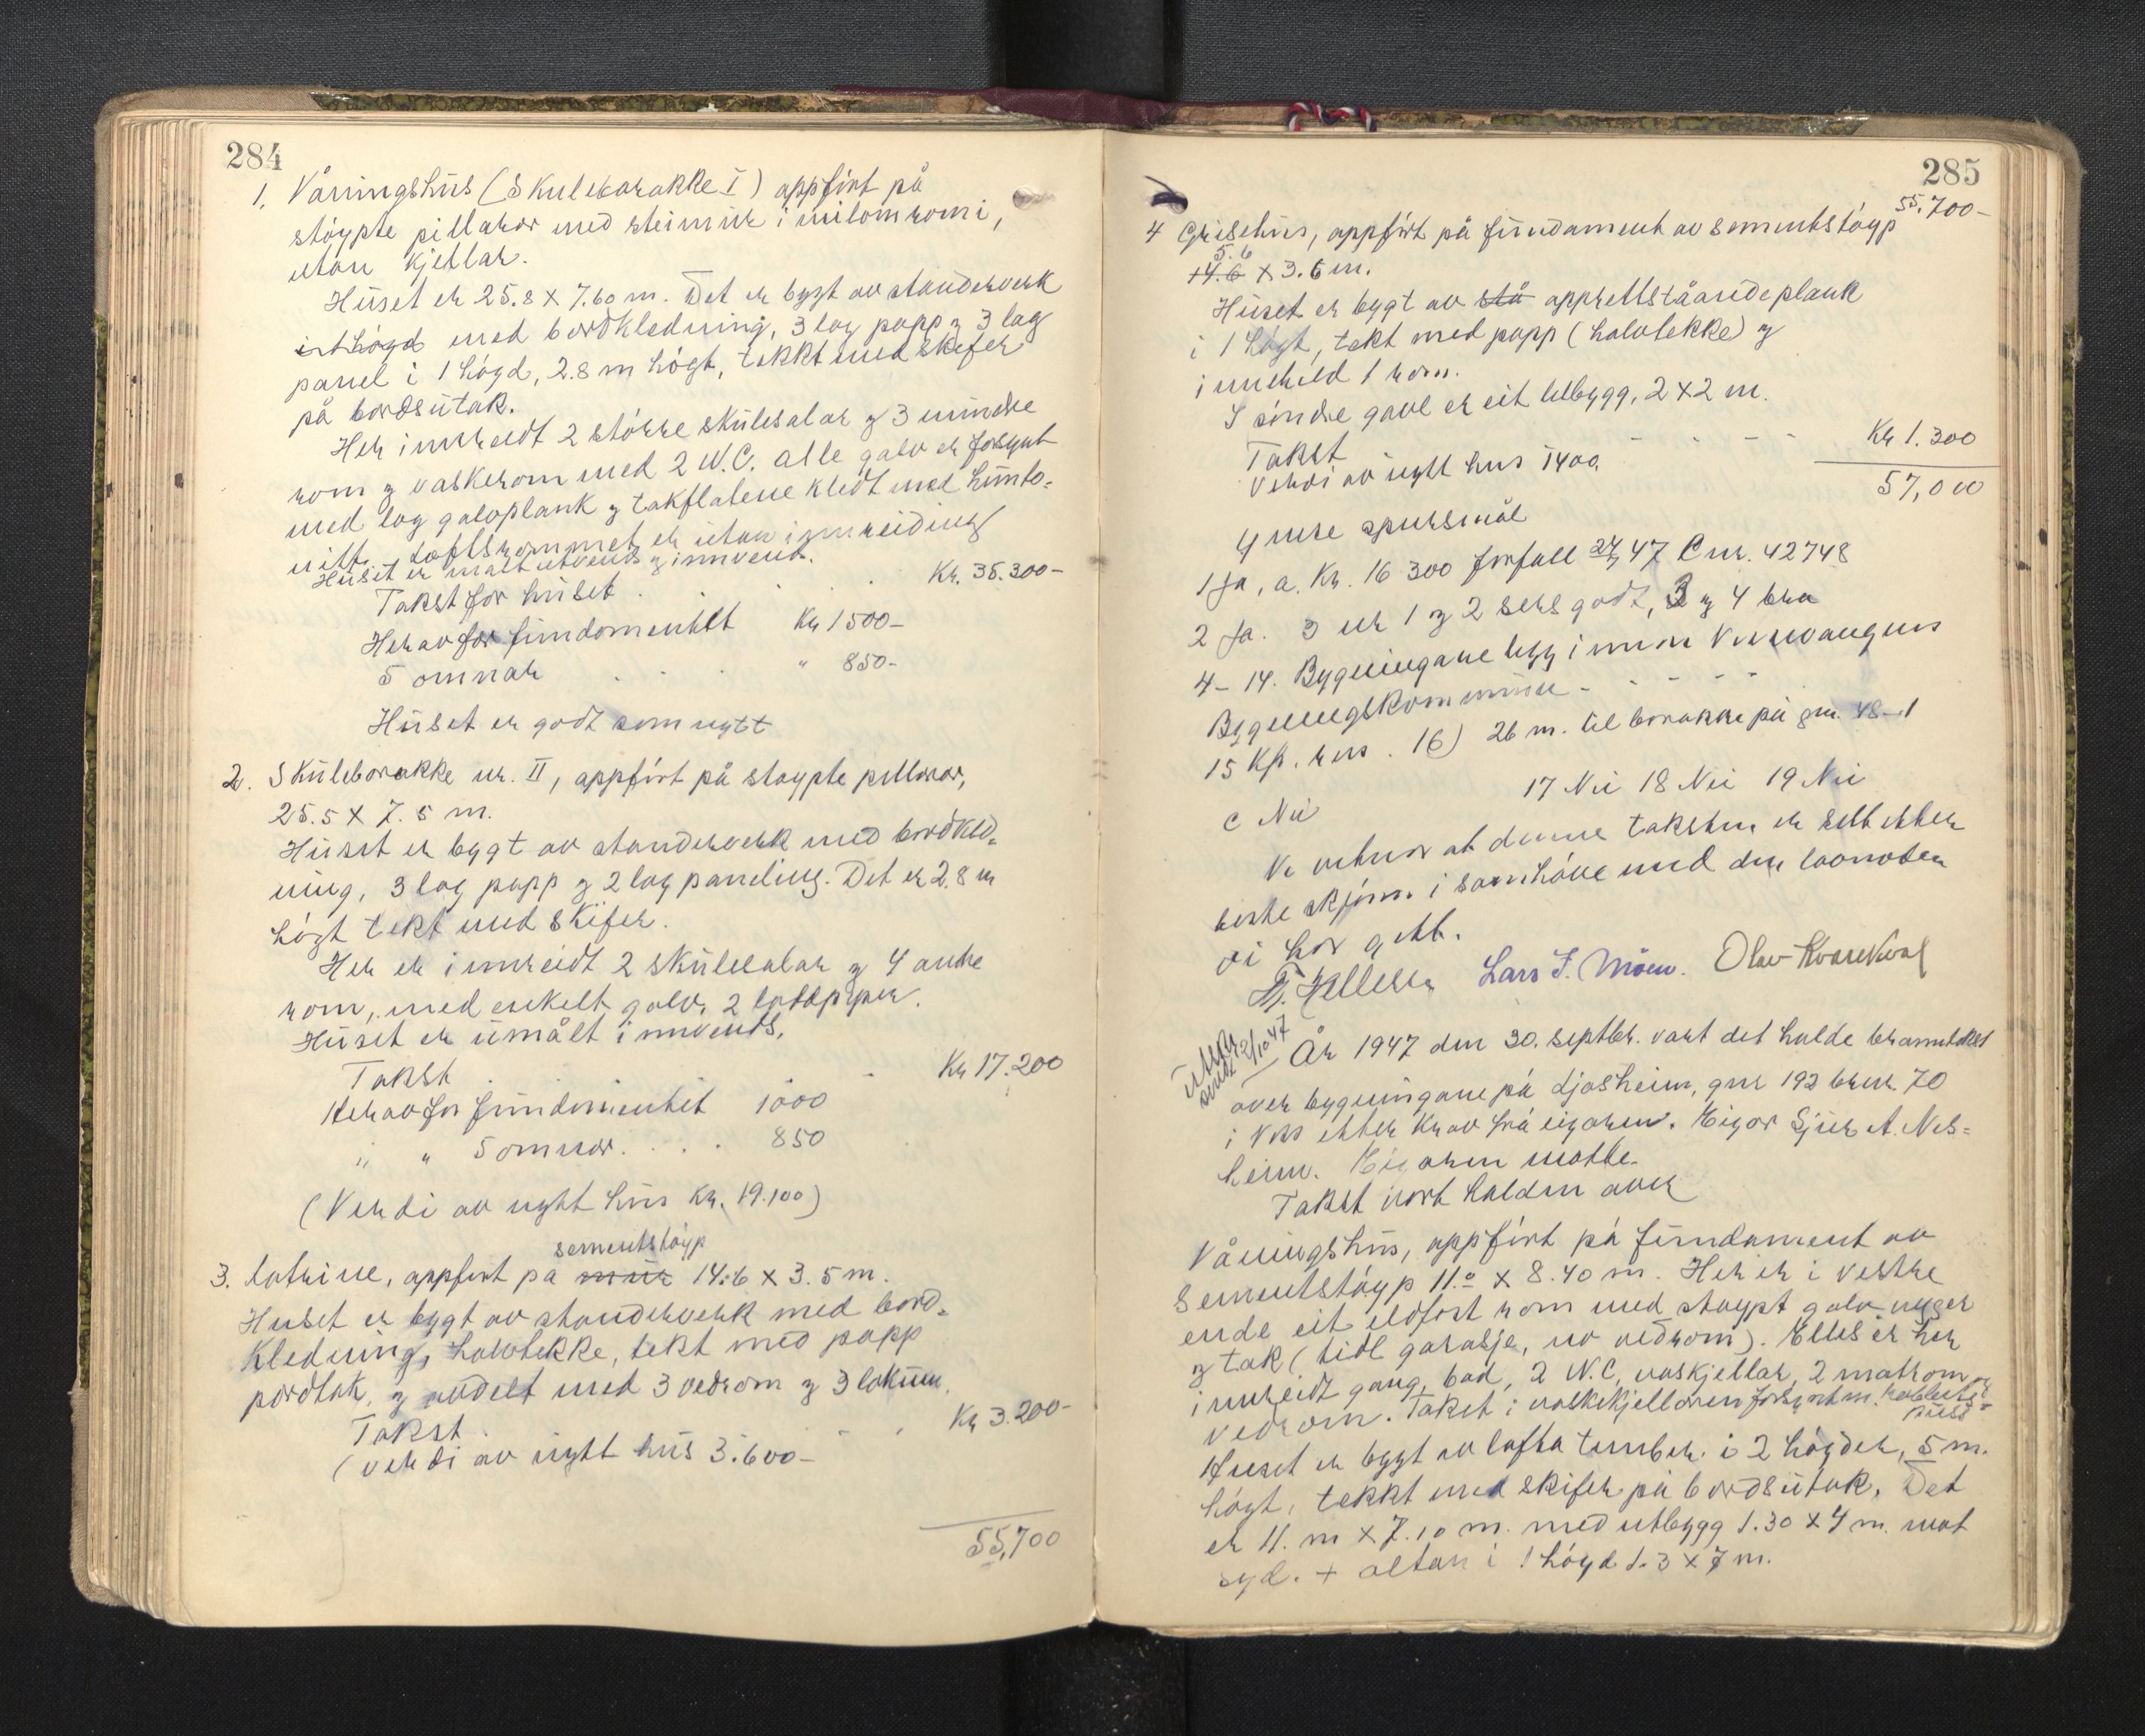 284
1. Våningshus (Skulebarakke I) oppfört på
stöypte pillarar med steinmur i millomromi,
utan kjellar.
Huset er 25.8 x 7.60 m. Det er bygt av standerverk
med bordkledning, 3 lag papp og 3 lag
panel i 1 högd, 2.8 m högt, tekkt med skifer
på bordsutak.
Her innreidt 2 större skulesalar og 3 mindre
rom og vaskerom med 2 W.C. alle golv er forsynt
med lag golvplank og takflatene kledt med hunto-
nitt. Loftsrommet er utan innreiding
Huset er malt utvends og innvend.
Takst for huset . . . Kr. 35.300-
Herav for fundamentet Kr 1500-
5 omnar . . . " 850-
Huset er godt som nytt
2. Skulebarakke nr. II, oppfört på stoypte pillarar,
25.5 x 7.5 m.
Huset er bygt av standerverk med bordkled-
ning, 3 lag papp og 2 lag paneling. Det er 2.8 m
högt tekt med skifer.
Her er innreidt 2 skulesalar og 4 andre
rom, med enkelt golv, 2 loftpiper.
Huset er umålt innvends.
Takst . . Kr 17.200
Herav for fundamentet 1000
" " 5 omnar. . . . 850
(Verdi av nytt hus kr. 19.100)
sementstöyp
3. Latrine, oppfört på mur 14.6 x 3.5 m.
Huset er bygt av standerverk med bord-
kledning, halvtekke, tekt med papp
bordtak, og avdelt med 3 vedrom og 3 lokum.
Takst - - . Kr 3.200-
(verdi av nytt hus 3.600-
55,700
285
55.700-
4 Grisehus, oppfört på fundament av sementstöyp
5.6
14.6 x 3.5 m.
Huset er bygt av stå opprettståande plank
i 1 högt, tekt med papp (halvtekke) og
inneheld 1 rom.
I söndre gavl er eit tilbygg, 2 x 2 m.
Takst - - - - Kr 1.300
Verdi av nytt hus 1400.
57,000
Ymse spursmål
1 Ja, a. Kr. 16 300 forfall 47 C nr. 42748
2 Ja. 3 nr 1 og 2 sers godt, 3 og 4 bra
4-14. Bygningane ligg innan Vossevangens
Bygningskommune - - - - -
15 Kfr. 16) 26 m. til barakke på gnr. 48-1
17 Nei 18 Nei 19 Nei
c Nei
Vi vitnar at denne taksten er sett etter
beste skjön. i samhöve med den lovnaden
vi har gitt.
Lars I. Möen. Olav Kvarekval
Utskr.
sendt 2/10 47
År 1947 den 30. septbr. vart det halde branntakst
over bygningane på Ljosheim, gnr 192 brnr. 70
i Voss etter krav frå eigaren. Eigar Sjur A. Nes-
heim. Eigaren motte.
Takst vart halden over
Våningshus, oppfört på fundament av
Sementstöyp 11.0 x 8.40 m. Her er i vestre
ende eit eldfast rom med stoypt golv vegger
og tak (tidl garasje, no vedrom). Elles er her
innreidt gang, bad, 2 W.C, vaskjellar, 2 matrom og
vedrom. Taket i vaskekjellaren forsynt m.
puss
Huset er bygt av lafta tember i 2 högder, 5 m.
högt, tekkt med skifer på bordsutak. Det
er 11. m x 7.10 m. med utbygg 1.30 x 4 m. mot
syd. + altan i 1 högd 1.3 x 7 m.